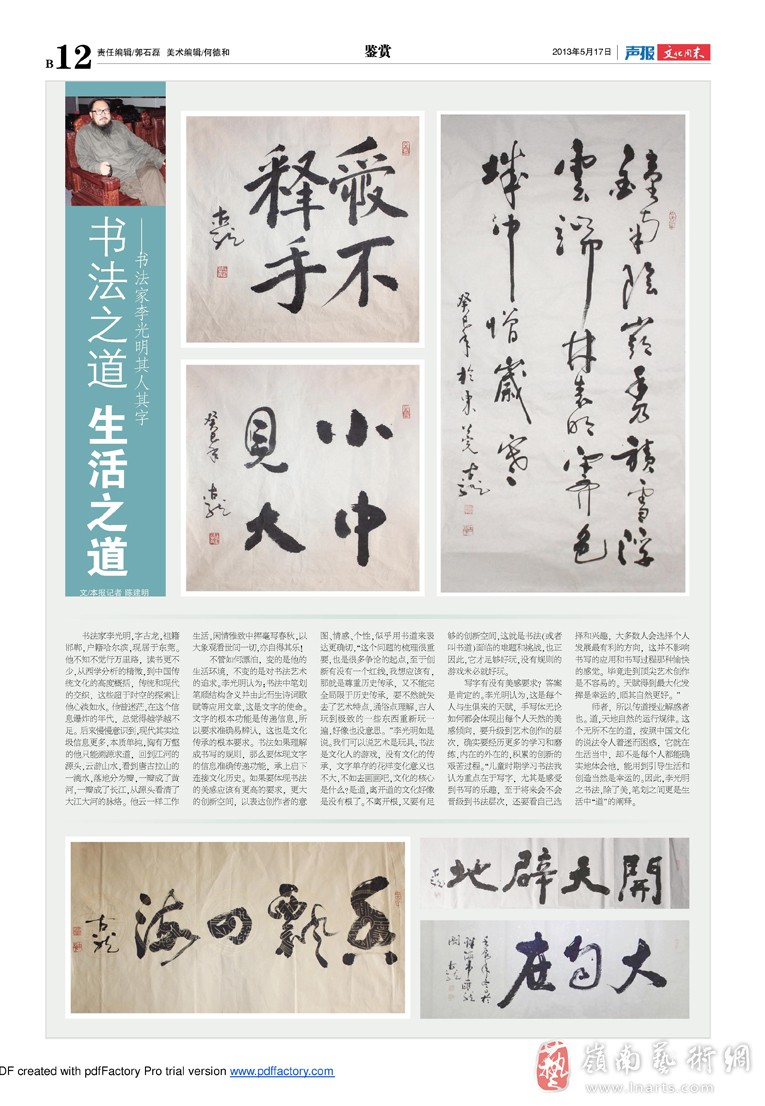 B12
责任编辑/郭石磊 美术编辑/何德和
鉴赏
2013年5月17日
声报
文化周末
书法之道 生活之道
——书法家李光明其人其字
文/本报记者 陈建明
愛不
释手
古龙
小中
見大
癸巳年 古龙
終南陰嶺秀積雪浮
雲端林表明霽色
城中增歲寒
癸巳年於東莞 古龙
书法家李光明,字古龙,祖籍
邯郸,户籍哈尔滨,现居于东莞。
他不知不觉行万里路,读书更不
少,从西学分析的精微,到中国传
统文化的高度概括,传统和现代
的交织,这些超于时空的探索让
他心淡如水。他曾迷茫,在这个信
息爆炸的年代,总觉得越学越不
足。后来慢慢意识到,现代其实垃
圾信息更多,本质单纯。胸有万壑
的他只能溯源求道,回到江河的
源头,云游山水,看到唐古拉山的
一滴水,落地分为瓣,一瓣成了黄
河,一瓣成了长江,从源头看清了
大江大河的脉络。他云一样工作
生活,闲情雅致中挥毫写春秋,以
大象观看世间一切,亦自得其乐!
不管如何漂泊,变的是他的
生活环境,不变的是对书法艺术
的追求。李光明认为,书法中笔划
笔顺结构含义并由此而生诗词歌
赋等应用文章,这是文字的使命。
文字的根本功能是传递信息,所
以要求准确易辨认,这也是文化
传承的根本要求。书法如果理解
成书写的规则,那么要体现文字
的信息准确传递功能,承上启下
连接文化历史。如果要体现书法
的美感应该有更高的要求,更大
的创新空间,以表达创作者的意
图、情感、个性,似乎用书道来表
达更确切。“这个问题的梳理很重
要,也是很多争论的起点,至于创
新有没有一个红线,我想应该有,
那就是尊重历史传承,又不能完
全局限于历史传承,要不然就失
去了艺术特点,通俗点理解,古人
玩到极致的一些东西重新玩一
遍,好像也没意思。”李光明如是
说。我们可以说艺术是玩具,书法
是文化人的游戏,没有文化的传
承,文字单存的花样变化意义也
不大,不如去画画吧,文化的核心
是什么?是道,离开道的文化好像
是没有根了。不离开根,又要有足
够的创新空间,这就是书法(或者
叫书道)面临的难题和挑战,也正
因此,它才足够好玩,没有规则的
游戏未必就好玩。
写字有没有美感要求?答案
是肯定的。李光明认为,这是每个
人与生俱来的天赋,手写体无论
如何都会体现出每个人天然的美
感倾向,要升级到艺术创作的层
次,确实要经历更多的学习和磨
练,内在的外在的,积累的创新的
艰苦过程。“儿童时期学习书法我
认为重点在于写字,尤其是感受
到书写的乐趣,至于将来会不会
晋级到书法层次,还要看自己选
择和兴趣,大多数人会选择个人
发展最有利的方向,这并不影响
书写的应用和书写过程那种愉快
的感觉。毕竟走到顶尖艺术创作
是不容易的。天赋得到最大化发
挥是幸运的,顺其自然更好。”
师者,所以传道授业解惑者
也。道,天地自然的运行规律。这
个无所不在的道,按照中国文化
的说法令人着迷而困惑,它就在
生活当中,却不是每个人都能确
实地体会他,能用到引导生活和
创造当然是幸运的。因此,李光明
之书法,除了美,笔划之间更是生
活中“道”的阐释。
香飄四海
古龙
開天辟地
古龙
大自在
DF created with pdfFactory Pro trial version www.pdffactory.com
嶺南藝術網
www.lnarts.com